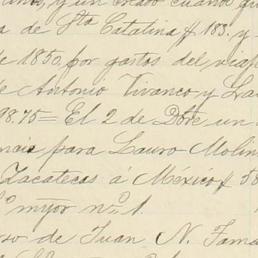 de Sta Catalina $ 183. y
de 1850, por gastos del viaje
de Antonio Vivanco y
98.75 = El 2 de Dbre un
para Lauro Molin
Zacatecas á México $ 58
myor nº 1.
de Juan N.